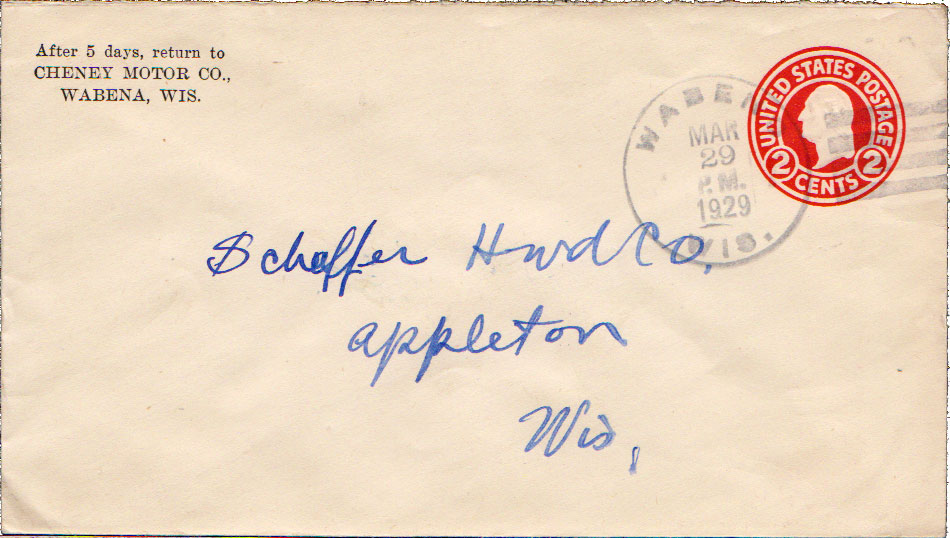 After 5 days, return to
CHENEY MOTOR CO.,
WABENA, WIS.
UNITED STATES POSTAGE
2 CENTS 2
MAR
29
P.M.
1929
WIS.
Schaffer Hwd Co.
Appleton
Wis,